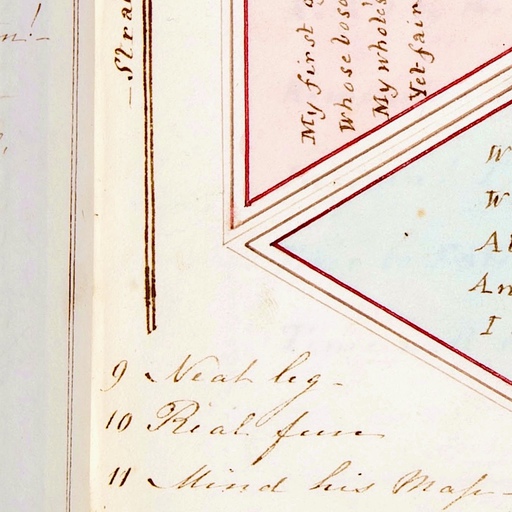 n!-
-Stra
My first
Whose boso
My whole's
Yet fair
W
W
Al
An
I
9 Neat leg-
10 Real fun
11 Mind his Mass-